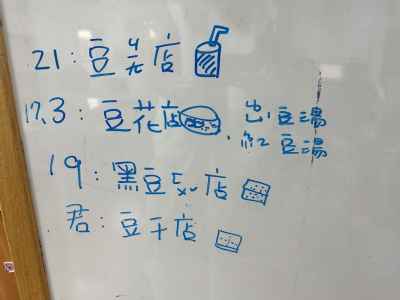 21: 豆 店
17.3: 豆花店 豆湯
紅豆湯
19: 黑豆 店
君: 豆干店